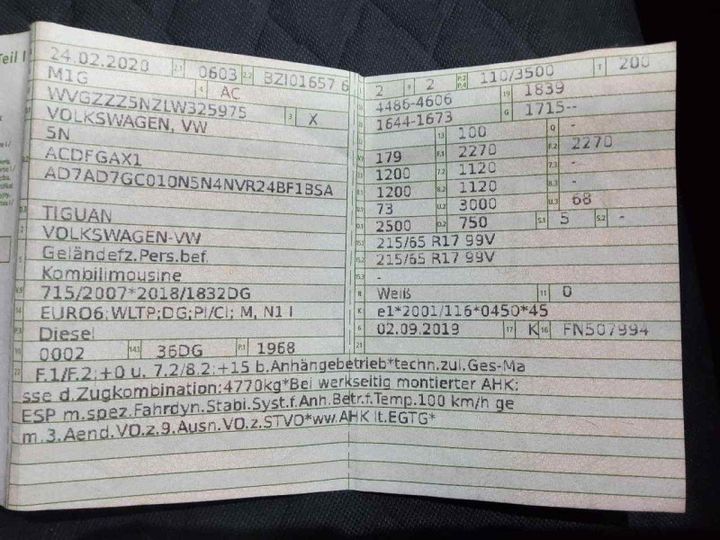 Teil I
24.02.2020 2.1 0603 2.2 BZI01657 6
M1G 4 AC
WVGZZZ5NZLW325975 3 X
VOLKSWAGEN, VW
5N
ACDFGAX1
AD7AD7GC010N5N4NVR24BF1BSA
TIGUAN
VOLKSWAGEN-VW
Geländefz.Pers.bef.
Kombilimousine
715/2007*2018/1832DG
EURO6;WLTP;DG;PI/CI; M, N1 I
Diesel
0002 14.1 36DG P.1 1968
2 9 2 P.2 P.4 110/3500 T 200
4486-4606 19 1839
1644-1673 G 1715--
13 100 Q -
179 F.1 2270 F.2 2270
1200 7.2 1120 7.3 -
1200 8.2 1120 8.3 -
73 U.2 3000 U.3 68
2500 O.2 750 S.1 5 S.2 -
215/65 R17 99V
215/65 R17 99V
-
R Weiß 11 0
K e1*2001/116*0450*45
6 02.09.2019 17 K 16 FN507994
21
22 F.1/F.2:+0 u. 7.2/8.2:+15 b.Anhängebetrieb*techn.zul.Ges-Ma
sse d.Zugkombination:4770kg*Bei werkseitig montierter AHK:
ESP m.spez.Fahrdyn.Stabi.Syst.f.Anh.Betr.f.Temp.100 km/h ge
m.3.Aend.VO.z.9.Ausn.VO.z.STVO*ww.AHK lt.EGTG*